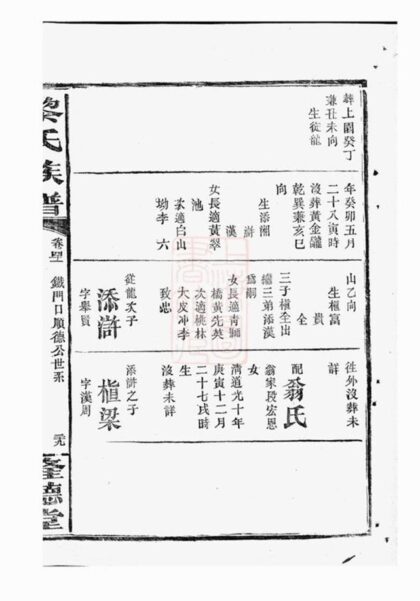 葬上園癸丁
兼丑未向
生從龍
年癸卯五月
二十八寅時
沒葬黃金
乾巽兼亥巳
向
生添湘
滸
漢
女長適黃翠
池
次適白山
坳李六
山乙向
生權富
貴
全
三子權全出
繼三弟添漢
爲嗣
女長適青獅
橋黃先英
次適桃林
大皮冲李
致忠
從龍次子
添滸
字舉賢
往外沒葬未
詳
配翁氏
翁家段宏恩
女
清道光十年
庚寅十二月
二十七戌時
生
沒葬未詳
添滸之子
植梁
字漢周
黎氏族譜
鐵門口順德公世系
德堂